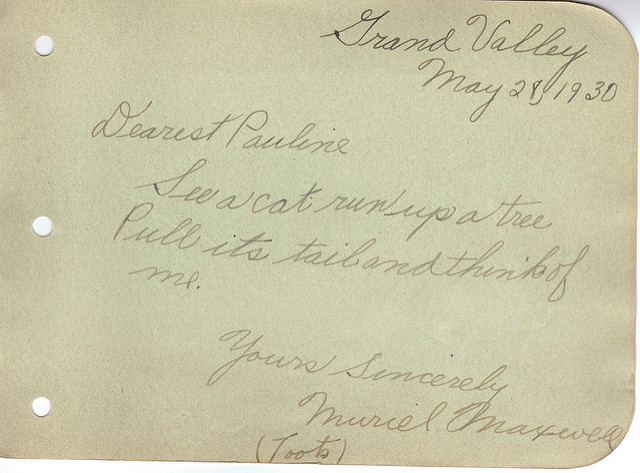 Grand Valley
May 28, 1930
Dearest Pauline
See a cat run up a tree
Pull its tail and think of
me.
Yours Sincerely
Muriel Maxwell
(Toots)